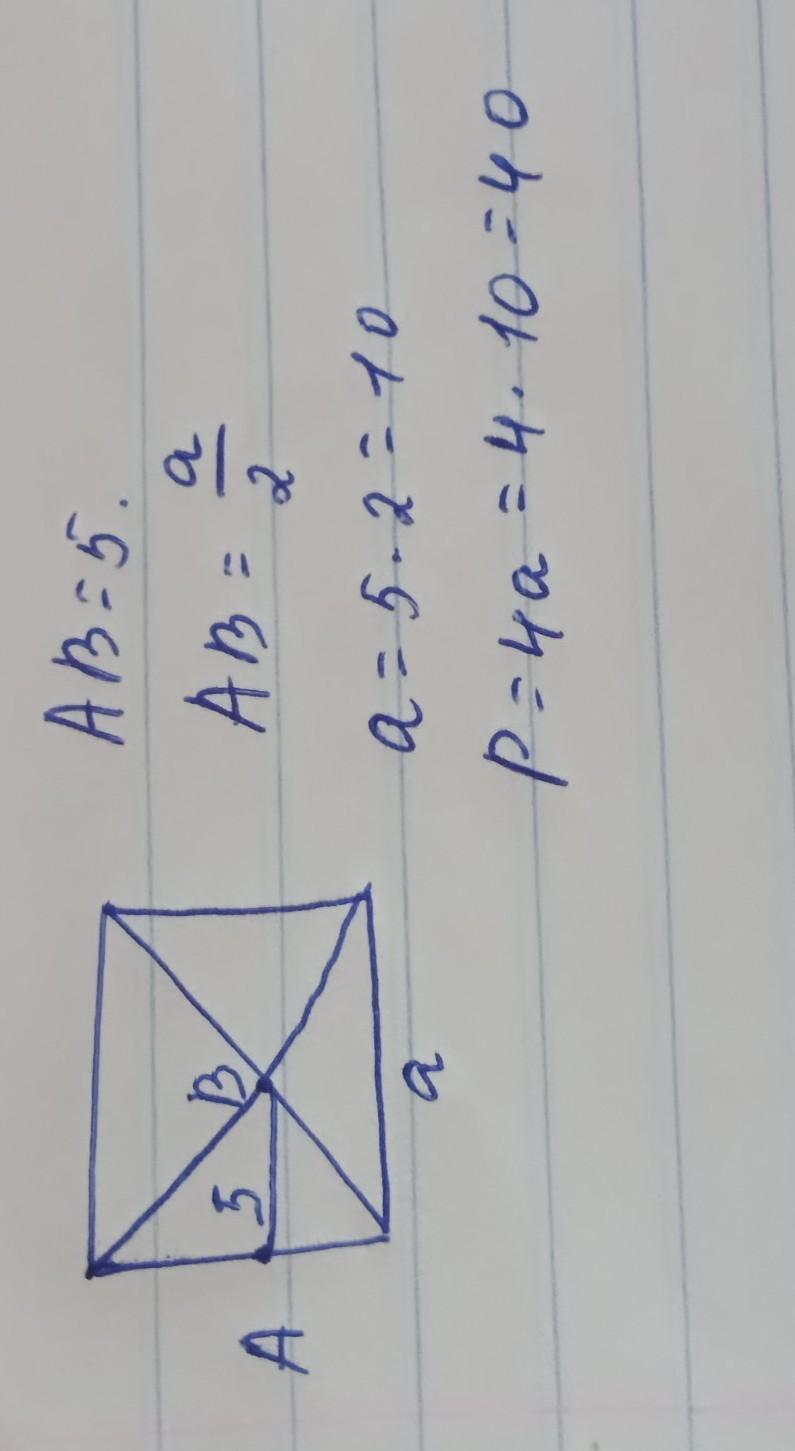 AB=5.
AB = a/2
a=5·2=10
P=4a=4·10=40
B
5
A
a